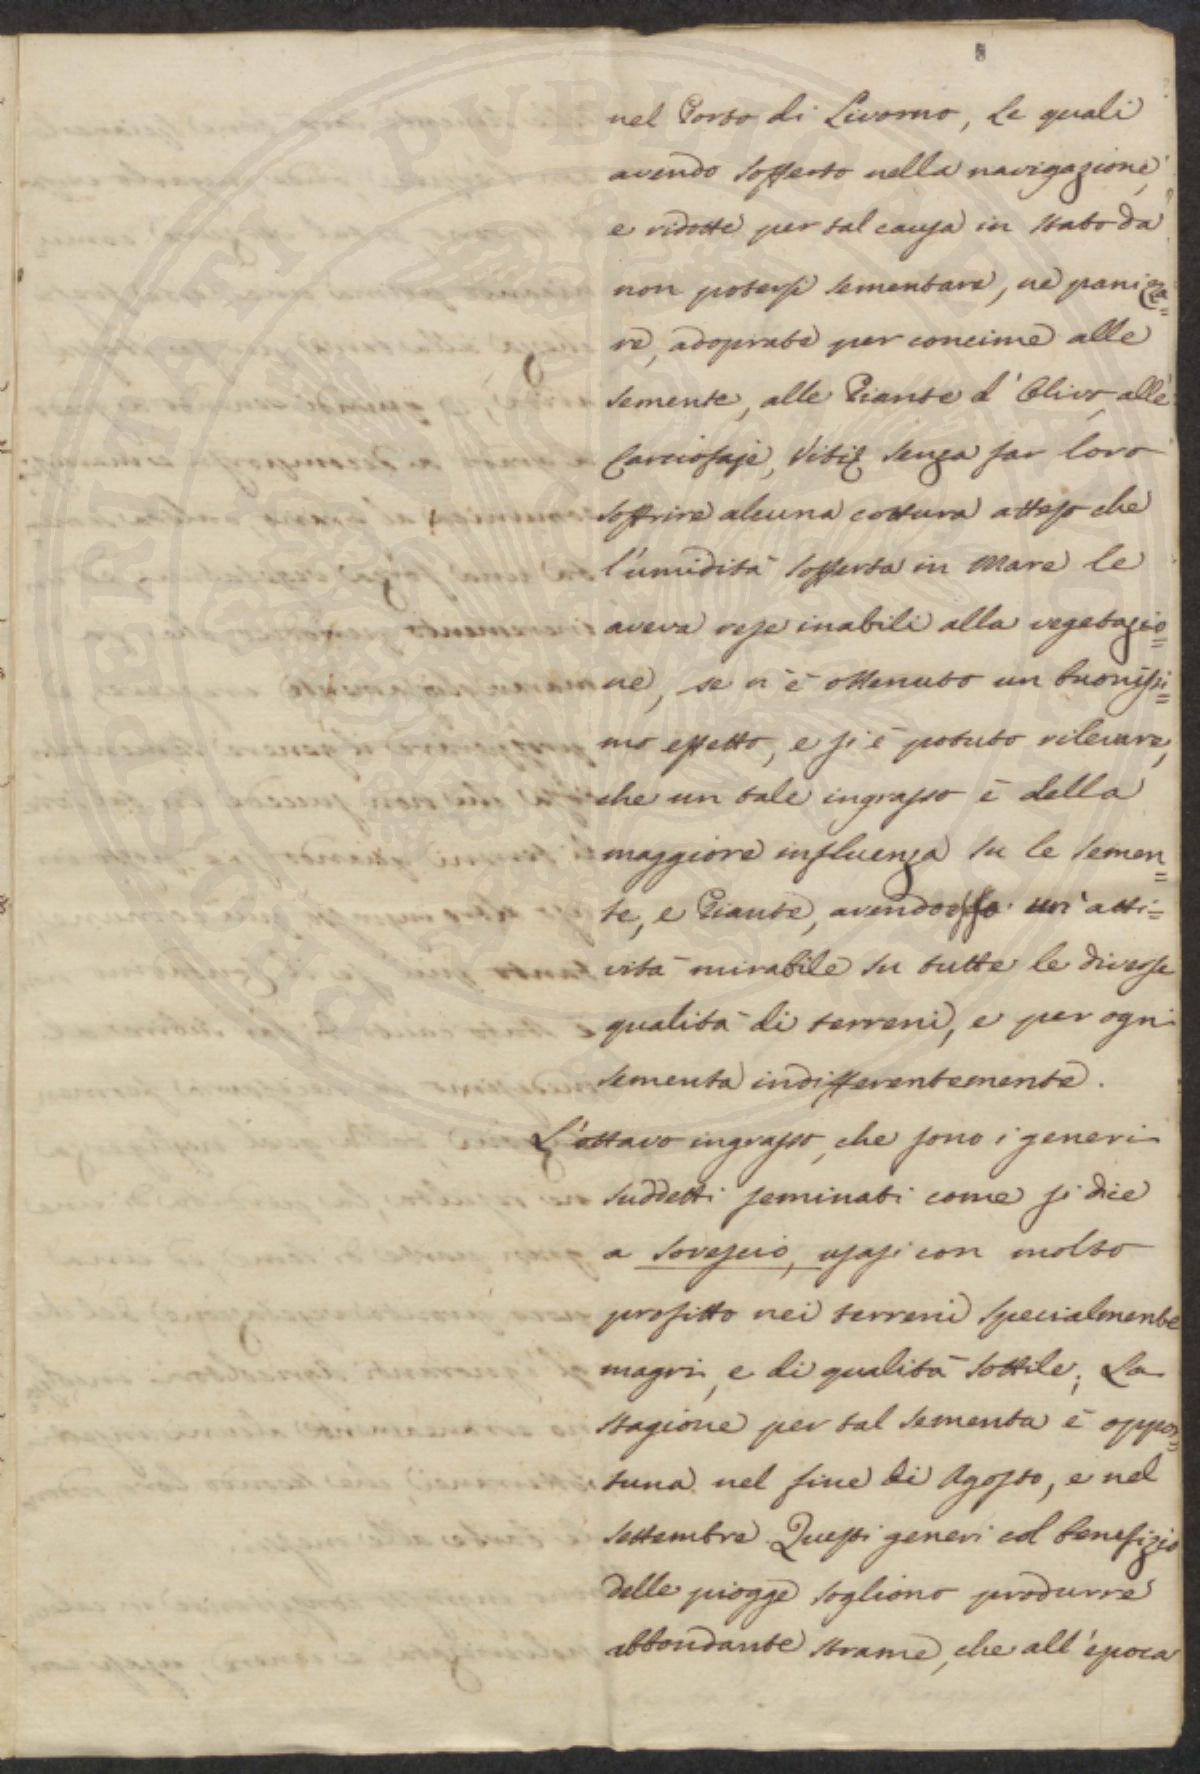 8
nel Porto di Livorno, le quali
avendo sofferto nella navigazione,
e ridotte per tal causa in stato da
non potersi sementare, ne paniza=
re, adoprate per concime alle
semente, alle Piante d'Olivo, alle
Carciofaje, Viti, senza far loro
soffrire alcuna cottura atteso che
l'umidità sofferta in Mare le
aveva rese inabili alla vegetazio=
ne, se n'è ottenuto un buonissi=
mo effetto, e si è potuto rilevare,
che un tale ingrasso è della
maggiore influenza su le semen=
te, e Piante, avendo esso un'atti=
vità mirabile su tutte le diverse
qualità di terreni, e per ogni
sementa indifferentemente.
L'ottavo ingrasso, che sono i generi
suddetti seminati come si dice
a sovescio, usasi con molto
profitto nei terreni specialmente
magri, e di qualità sottile; La
stagione per tal sementa è oppor=
tuna nel fine di Agosto, e nel
settembre. Questi generi col benefizio
delle piogge sogliono produrre
abbondante strame, che all'epoca